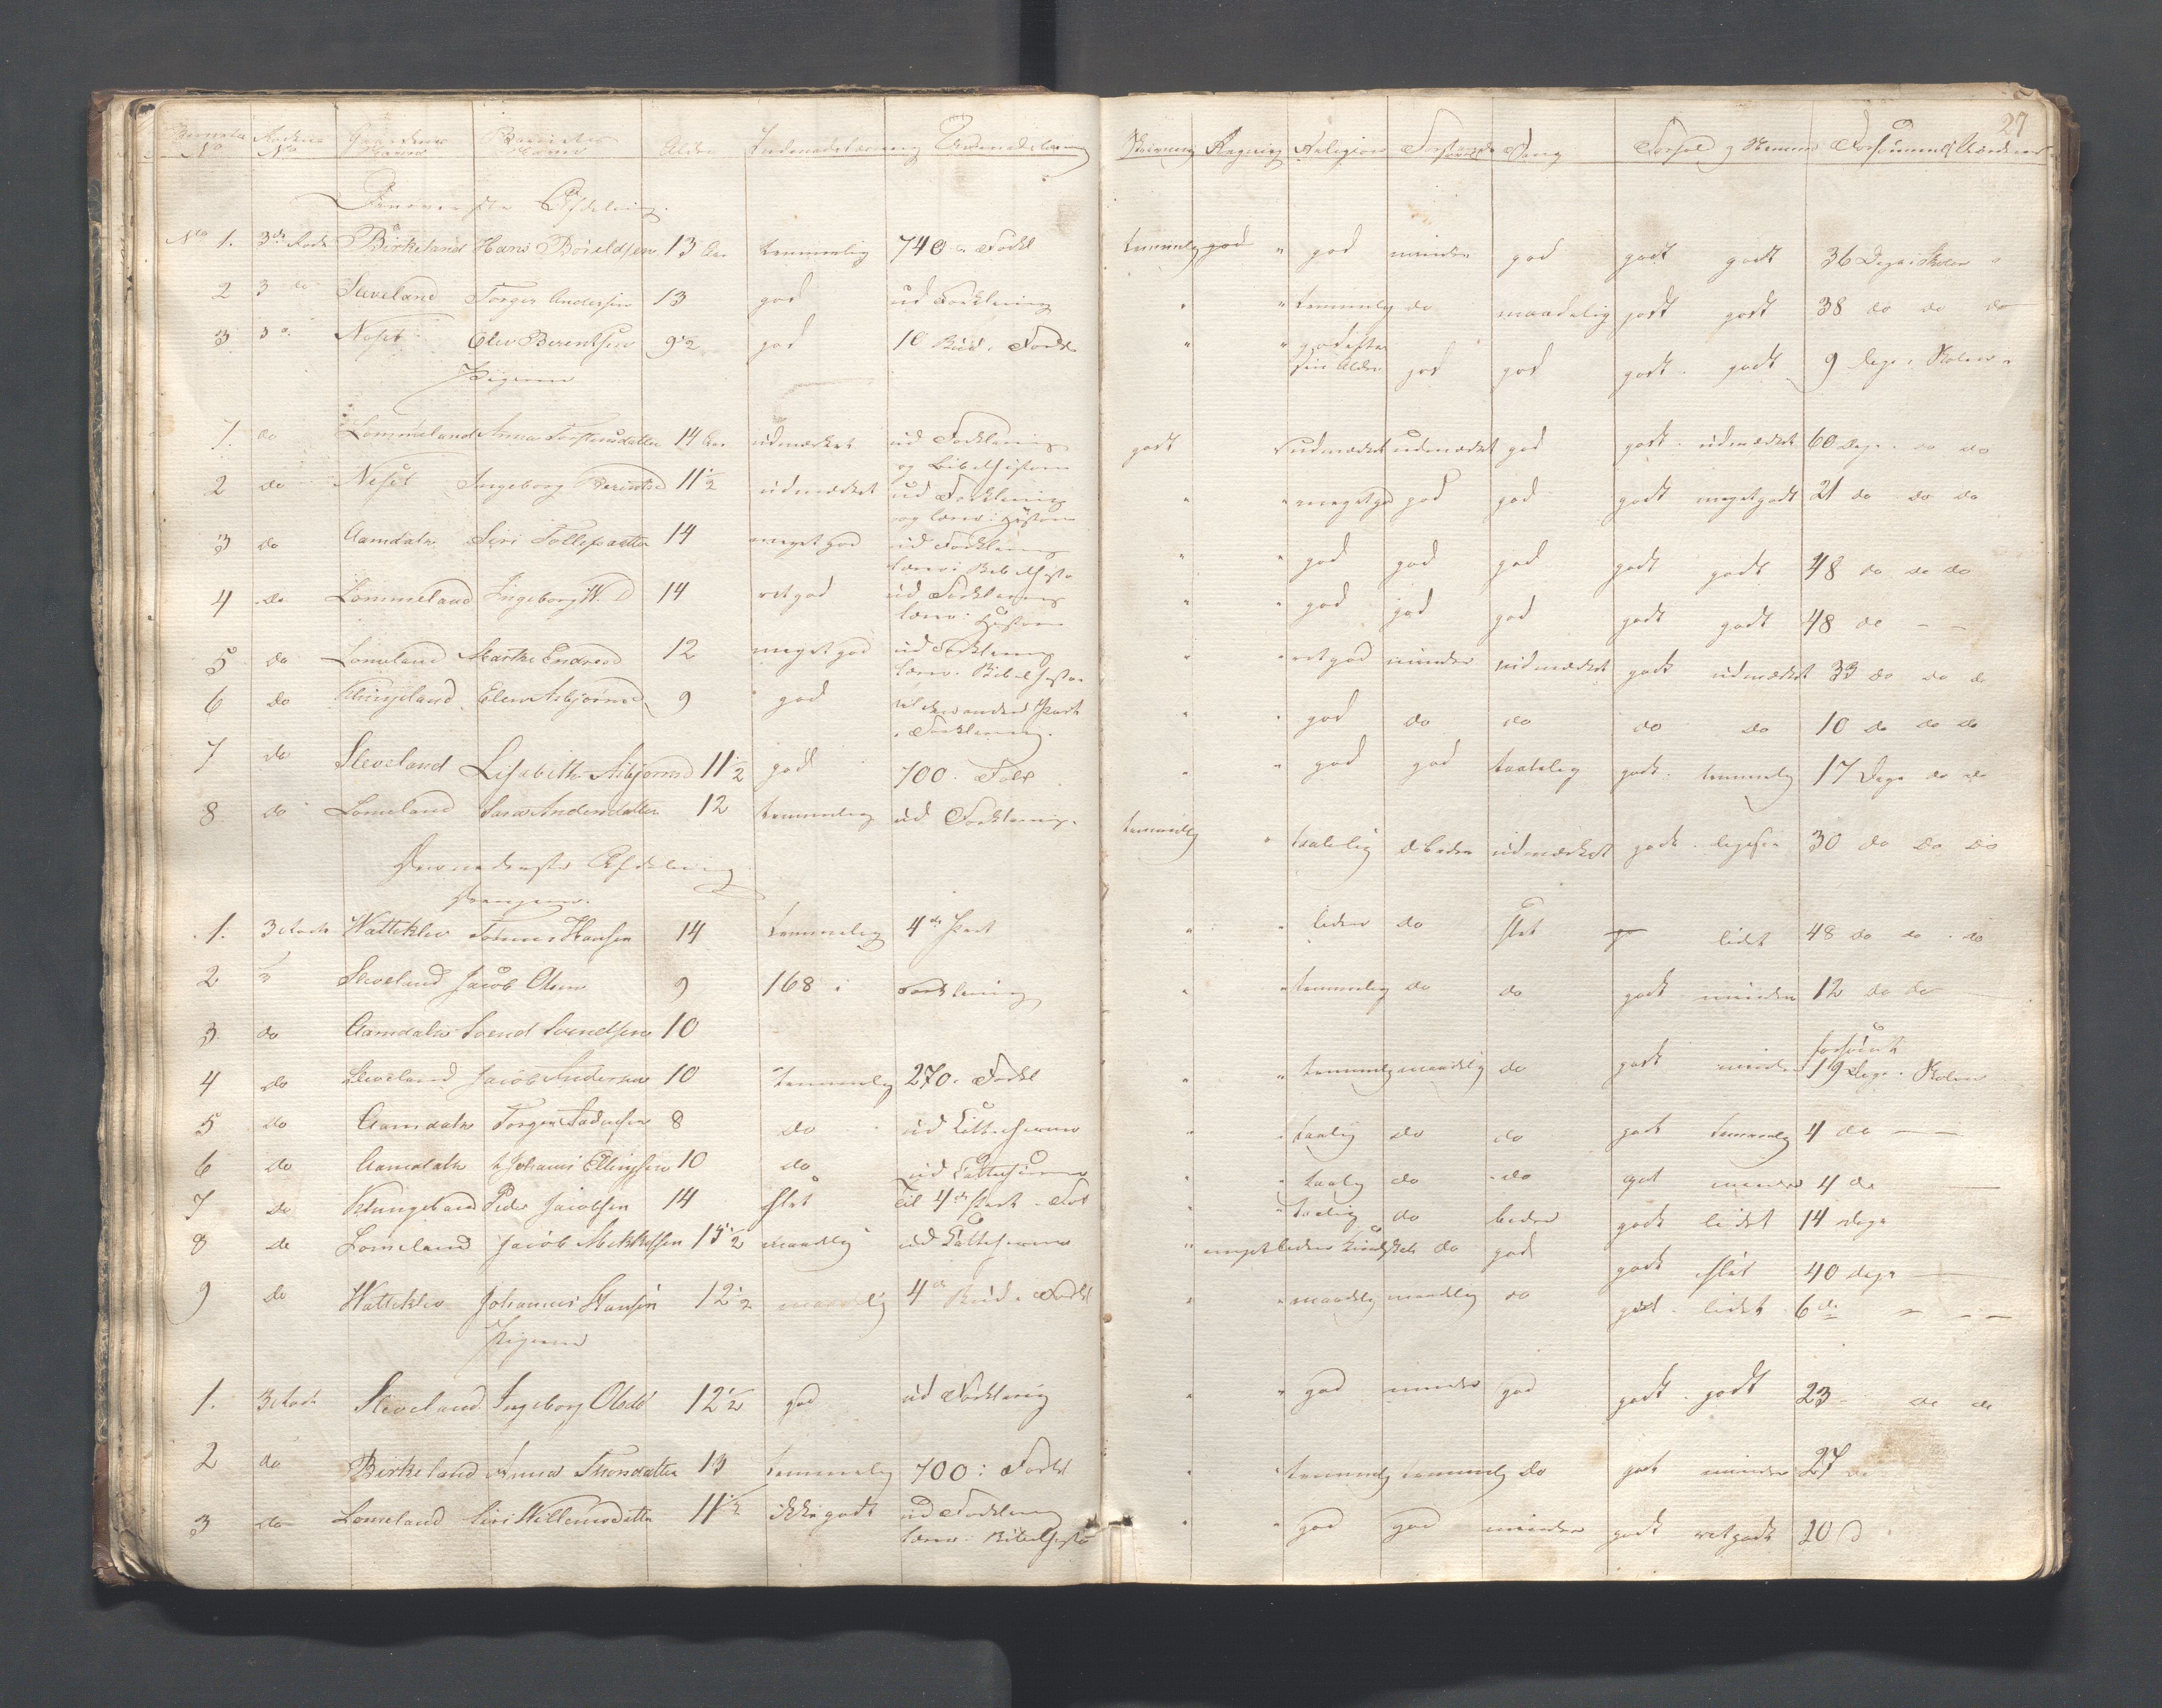 27
No Rodens No Gaardenes Navn Børnenes Navn Alder Indenadslæsning Udenadslæsning Skrivning Regning Religion Forstand Sang Forhold og Nemme Forsømmelse
Den øverste Afdeling
No 1. 3de Rode Birkeland Hans Boieldsen 13 Aar temmelig 740 i Forkl temmelig god " god mindre god godt godt 36 Dage i Skolen
2 3 do Sleveland Torger Andersen 13 god ud Forklaring " " temmelig do maadelig godt godt 38 do do do
3 3 Neset Olen Berentsen 9 1/2 god 10 Bud i Forkl " " god efter
sin Alder god god godt godt 9 Dage i Skolen
Pigerne
1. do Lommeland Anna Torstensdatter 14 Aar udmerket ud Forklaring
og Bibelhistorie godt " udmerket udmerket god godt udmerket 60 Dage do do
2 do Neset Ingeborg Berentsd 11 1/2 udmerket ud Forklaring
og lærer Historie " " megetgod god god godt megetgodt 21 do do do
3 do Aamdalen Siri Tollefsdatter 14 meget god ud Forklaring
lærer Bibelhisto " " god god god godt godt 48 do do do
4 do Lommeland Ingeborg W. D 14 retgod ud Forklaring
lærer Historie " " god god god godt godt 48 do - -
5 do Lomeland Marthe Endresd 12 meget god ud Forklaring
lærer Bibelhisto " " retgod mindre udmerket godt udmerket 33 do do do
6 do Klungeland Elen Asbjørnsd 9 god til den anden Part
i Forklaring " " god do do do do 10 do do do
7 do Sleveland Lisabeth Asbjørnsd 11 1/2 godt 700 i Forkl " " god god taalelig godt temmelig 17 Dage do do
8 do Lomeland Sara Andersdatter 12 temmelig ud Forklaring temmelig " taalelig do bedre udmerket godt ligesaa 30 do do do
Den nederste Afdeling
Drengene
1. 3 Rode Watteklev Tønnes Hansen 14 temmelig 4de Part " " liden do slet lidet 48 do do do
2 3 Sleveland Jacob Olsen 9 168 i Forklaring " " temmelig do do godt mindre 12 do do
3 do Aamdalen Svend Svendsen 10
4 do Sleveland Jacob Andersen 10 temmelig 270 i Forkl " " temmelig maadelig do godt mindre forsømt
19 Dage i Skolen
5 do Aamdalen Torger Sadusen 8 do ud Cattechismo " " taalig do do godt temmelig 4 do
6 do Aamdalen Johannes Ellingsen 10 do ud Cattechismo " " taalig do do got mindre 4 do
7 do Klungeland Peder Jacobsen 14 slet til 4de Part i Fork " " taalig do bedre godt lidet 14 dage
8 do Lomeland Jacob Mikkelsen 15 1/2 maadelig ud Cattechismo " meget liden Kundskab do god godt slet 40 dage
9 do Watteklev Johannes Hansen 12 1/2 maadelig 4de Bud i Forkl " " maadelig maadelig do godt lidet 6 do
Pigerne
1. 3 Rode Sleveland Ingeborg Olsd 12 1/2 god ud Forklaring " " god mindre god godt godt 23 do do
2 do Birkeland Anna Thorsdatter 13 temmelig 700 i Forkl " " temmelig temmelig do godt mindre 27 do
3 do Lomeland Siri Willemsdatter 11 1/2 ikke godt ud Forklaring
lærer Bibelhisto " " god god mindre godt retgodt 20 D